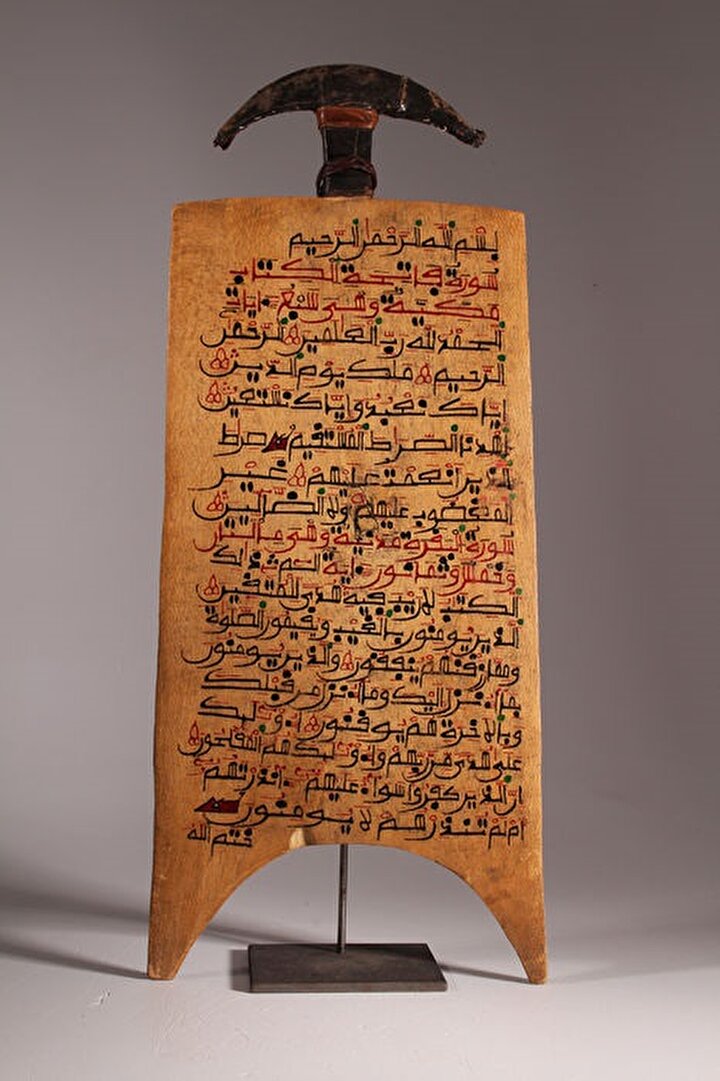 بسم الله الرحمن الرحيم
سورة فاتحة الكتاب
مكية وهي سبع ءايات
الحمد لله رب العلمين الرحمن
الرحيم ملك يوم الدين
إياك نعبد وإياك نستعين
اهدنا الصراط المستقيم صراط
الذين أنعمت عليهم غير
المغضوب عليهم ولا الضالين
سورة البقرة مدنية وهي مائتان
وخمس وثمانون ءاية الم ذلك
الكتب لا ريب فيه هدى للمتقين
الذين يومنون بالغيب ويقيمون الصلوة
ومما رزقنهم ينفقون والذين يومنون
بما أنزل إليك وما أنزل من قبلك
وبالاخرة هم يوقنون أولئك
على هدى من ربهم وأولئك هم المفلحون
إن الذين كفروا سواء عليهم ءانذرتهم
أم لم تنذرهم لا يومنون
ختم الله